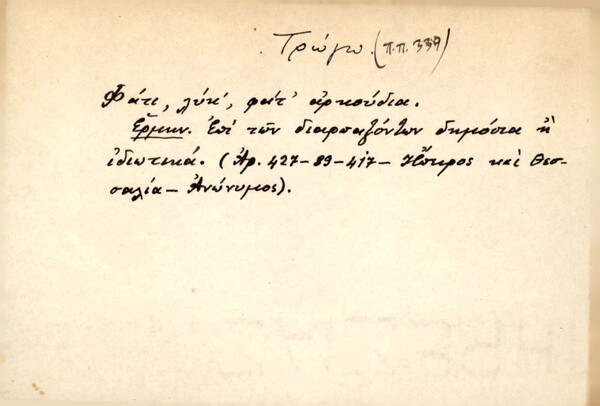 Τρώγω. (π.π. 339)
Φάτε, λύκ', φάτ' ἀρκούδια.
Ἑρμην. Ἐπὶ τῶν διαρπαζόντων δημόσια ἢ
ἰδιωτικά. (Ἀρ. 427-89-417- Ἤπειρος καὶ Θεσ-
σαλία - Ἀνώνυμος).